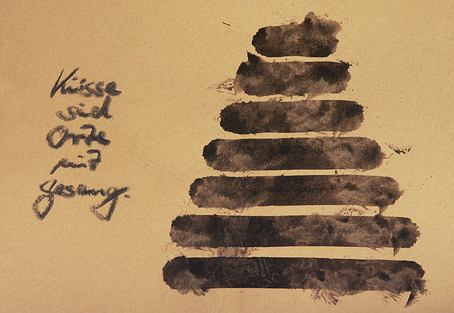 Küsse
sind
Orte
mit
gesang.